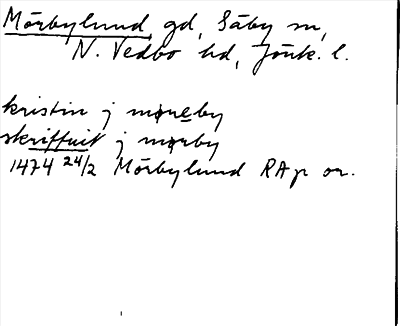 Mörbylund, gd, Säby sn,
N. Vedbo hd, Jönk. l.
kristin j møreby
skriffuit j mørby
1474 24/2 Mörbylund RAp or.